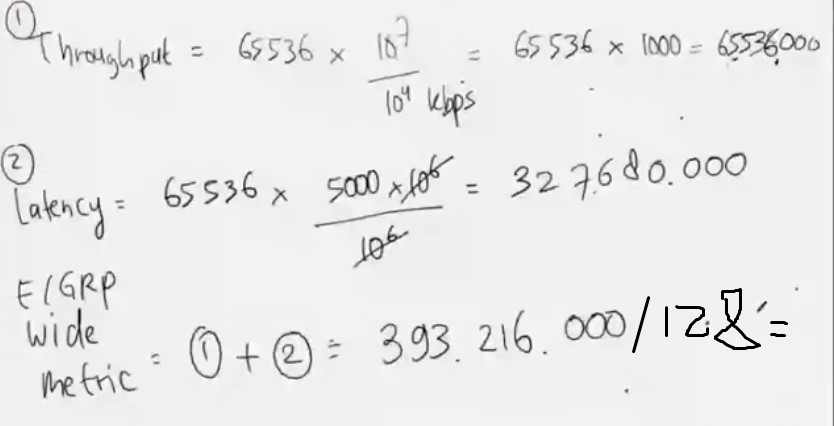 ① Throughput = 65536 × 10⁷ / 10⁴ kbps = 65536 × 1000 = 65536000
② Latency = 65536 × 5000 × 10⁶ / 10⁶ = 327680.000
EIGRP
wide
metric = ① + ② = 393.216.000/128 =